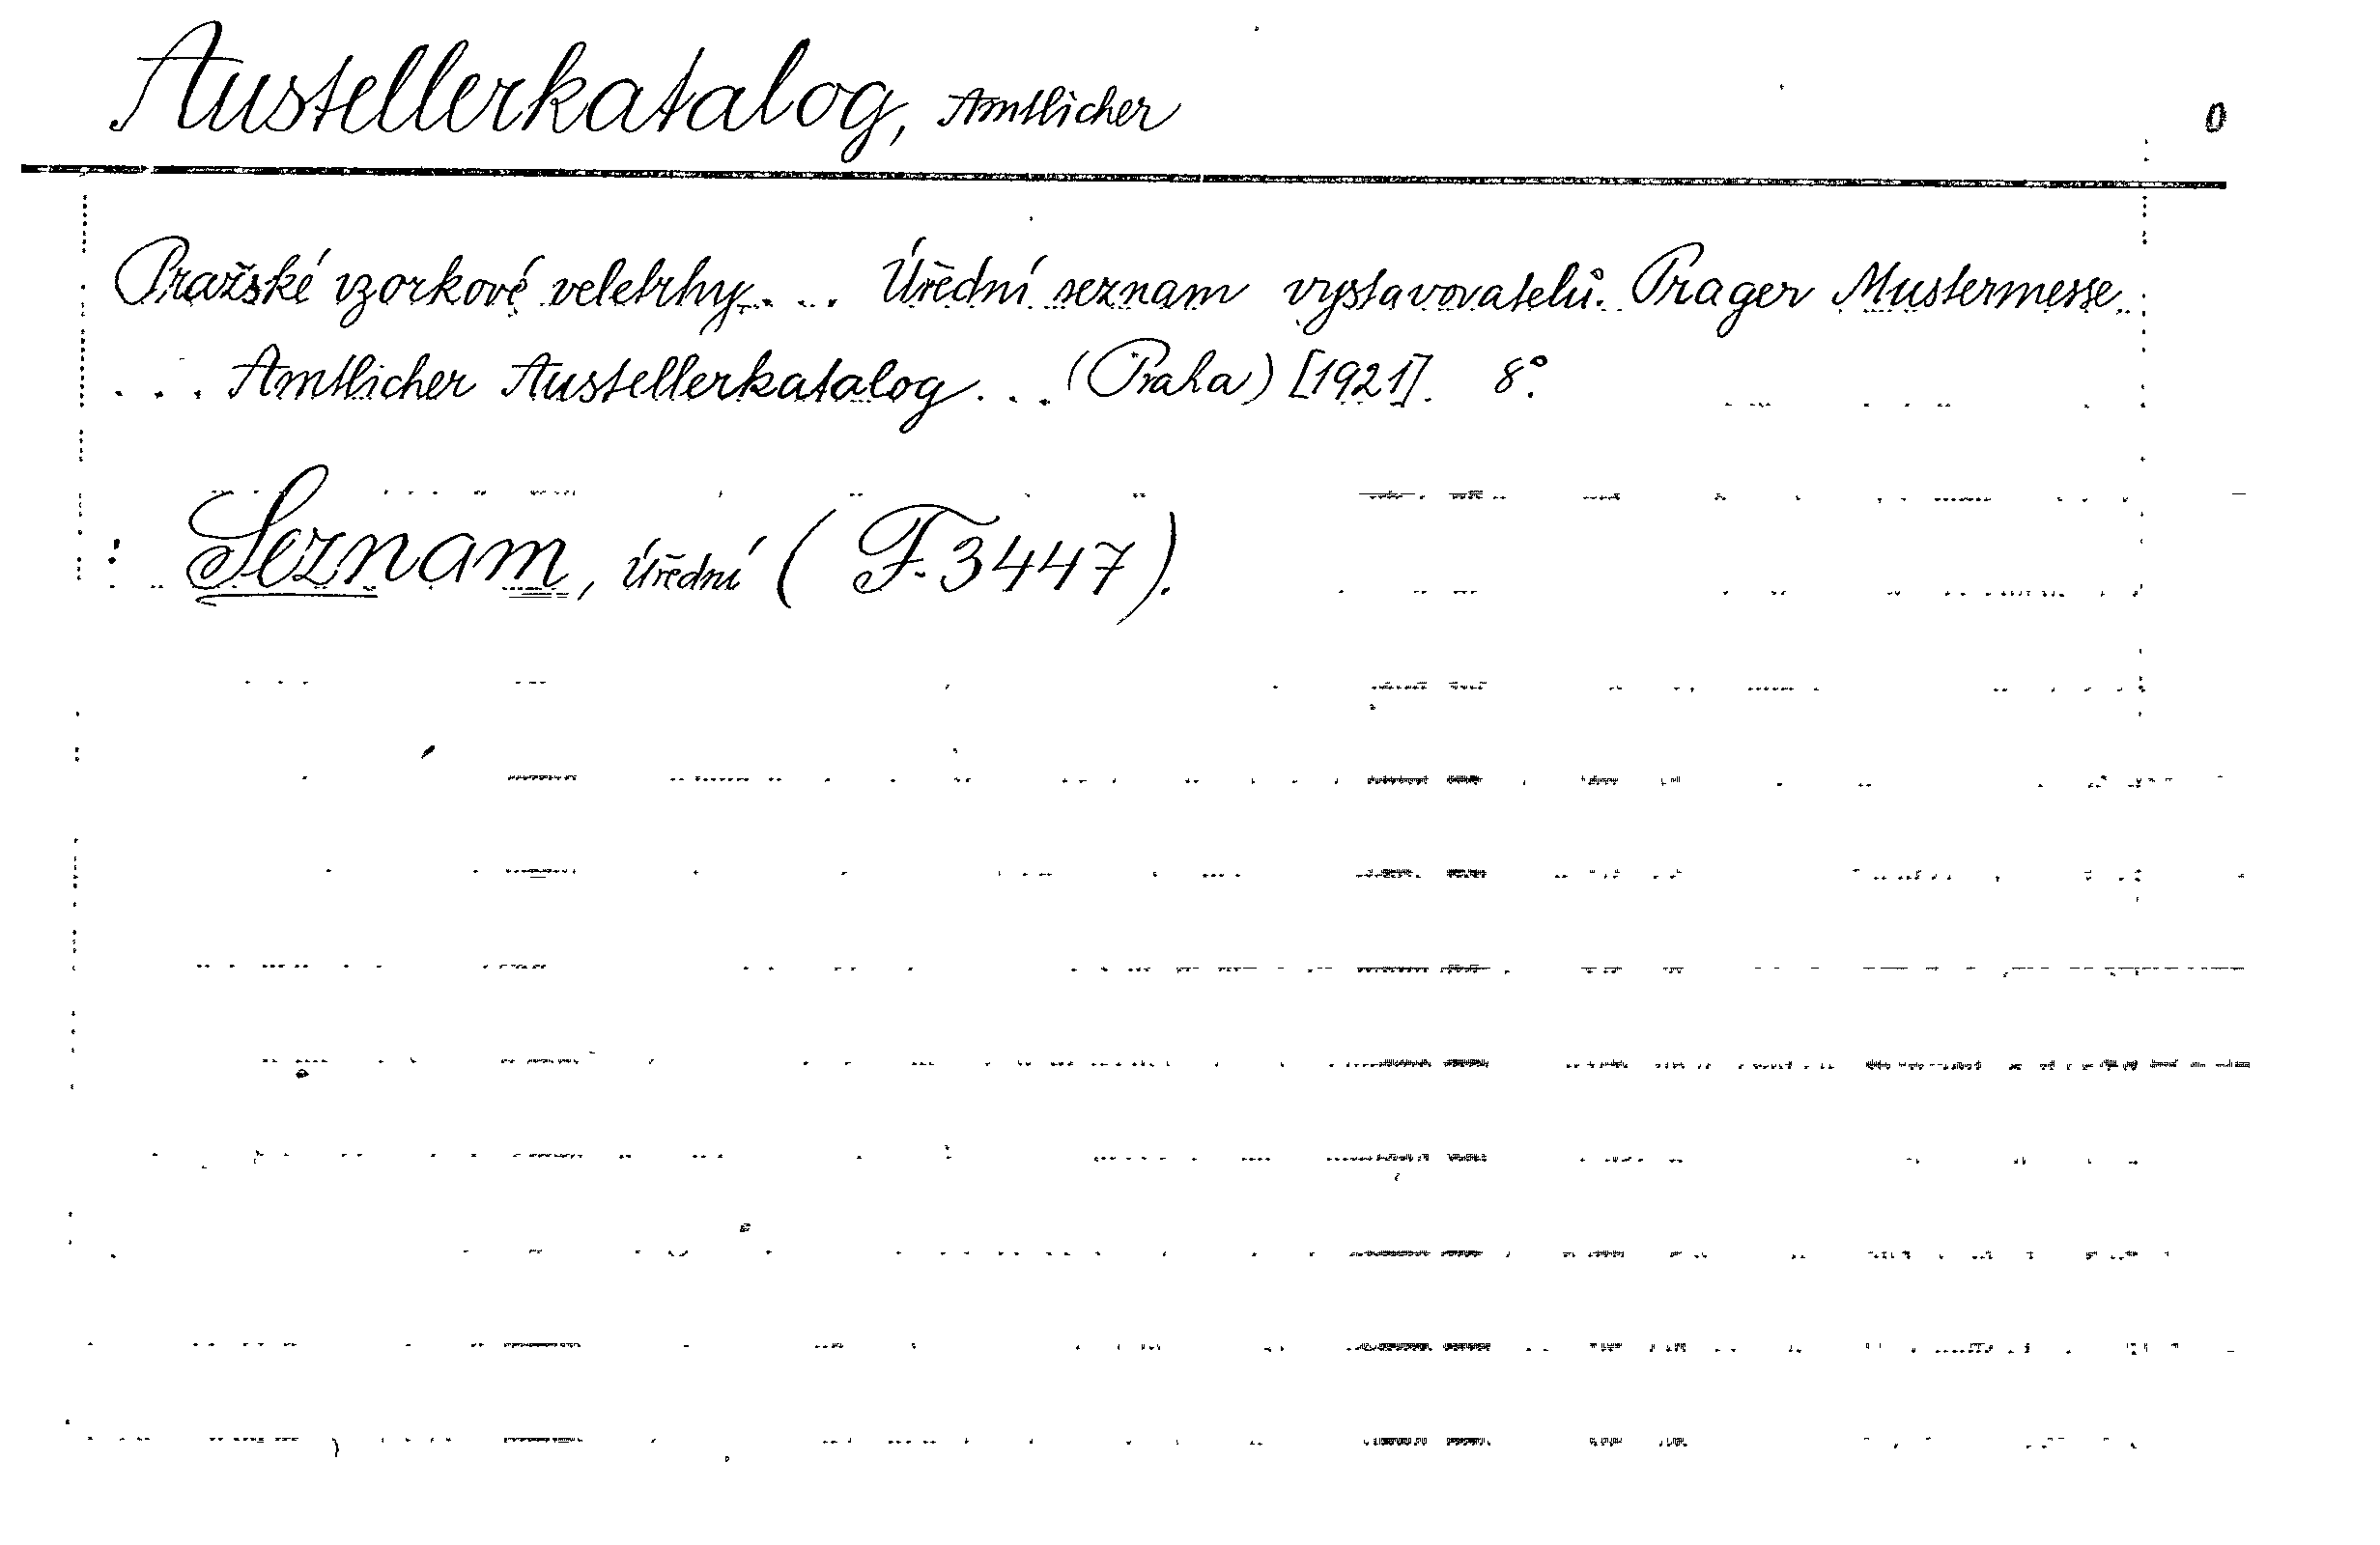 Austellerkatalog, Amtlicher 0
Pražské vzorkové veletrhy... Úřední seznam vystavovatelů. Prager Mustermesse
... Amtlicher Austellerkatalog... (Praha) [1921]. 8°.
: Seznam, úřední (F. 3447).